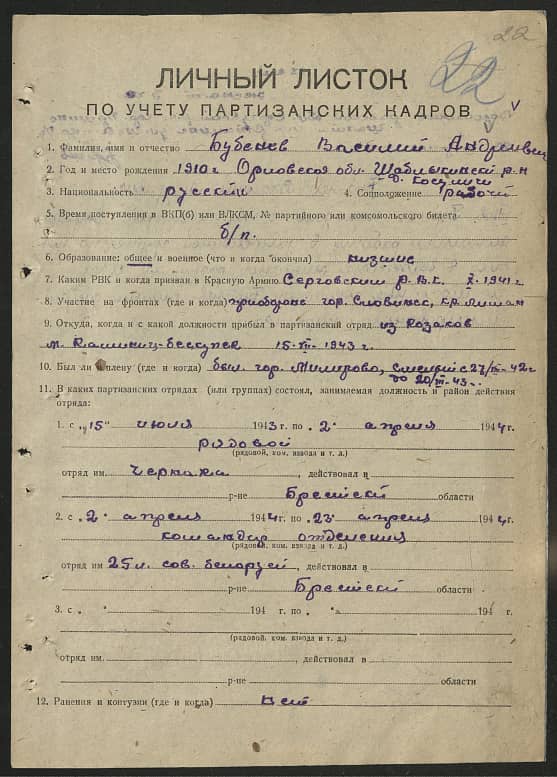 22
22
ЛИЧНЫЙ ЛИСТОК
ПО УЧЕТУ ПАРТИЗАНСКИХ КАДРОВ
1. Фамилия, имя и отчество Бубенев Василий Андреевич
2. Год и место рождения 1910 г Орловская обл. Шаблыкинский р-н
д. Косуличи
3. Национальность русский 4. Соцположение рабочий
5. Время поступления в ВКП(б) или ВЛКСМ, № партийного или комсомольского билета
б/п.
6. Образование: общее и военное (что и когда окончил) низшее
7. Каким РВК и когда призван в Красную Армию Серговским Р.В.К. X-1941 г
8. Участие на фронтах (где и когда) гор. Славянск,
9. Откуда, когда и с какой должности прибыл в партизанский отряд из козаков
м. 15-VII-1943 г.
10. Был ли в плену (где и когда) был гор. Миллерово,
11. В каких партизанских отрядах (или группах) состоял, занимаемая должность и район действия
отряда:
1. с „15" июля 1943 г. по „2" апреля 1944 г.
рядовой
(рядовой, ком. взвода и т. д.)
отряд им. Чернака, действовал в
р-не Брестской области
2. с „2" апреля 1944 г. по „23" апреля 1944 г.
командир отделения
(рядовой, ком. взвода и т. д.)
отряд им 25 л. сов. белорусей, действовал в
р-не Брестской области
3. с „ " 194 г. по „ " 194 г.
(рядовой, ком. взвода и т. д.)
отряд им. , действовал в
р-не области
12. Ранения и контузии (где и когда) Нет